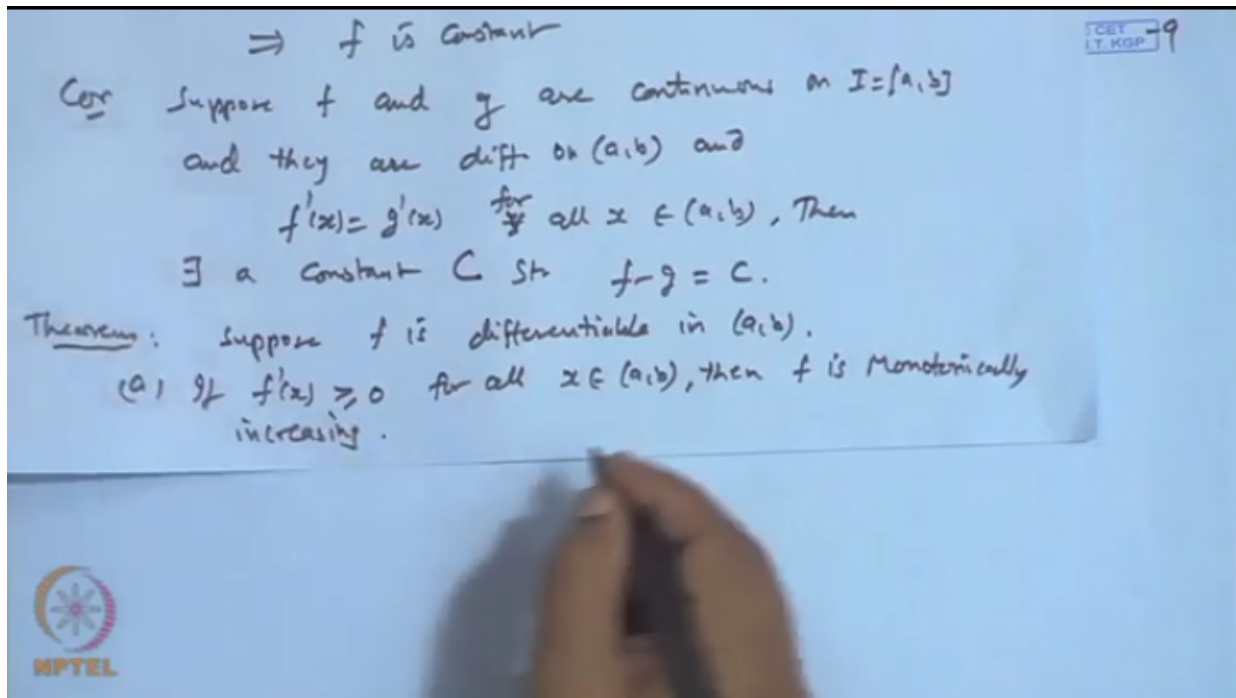 ⇒ f is Constant
CET
I.T. KGP -9
Cor Suppose f and g are continuous on I=[a,b]
and they are diff on (a,b) and
f'(x)= g'(x) for all x ∈ (a,b), Then
∃ a Constant C St f-g = C.
Theorem: Suppose f is differentiable in (a,b).
(a) If f'(x) ≥ 0 for all x ∈ (a,b), then f is Monotonically
increasing.
NPTEL